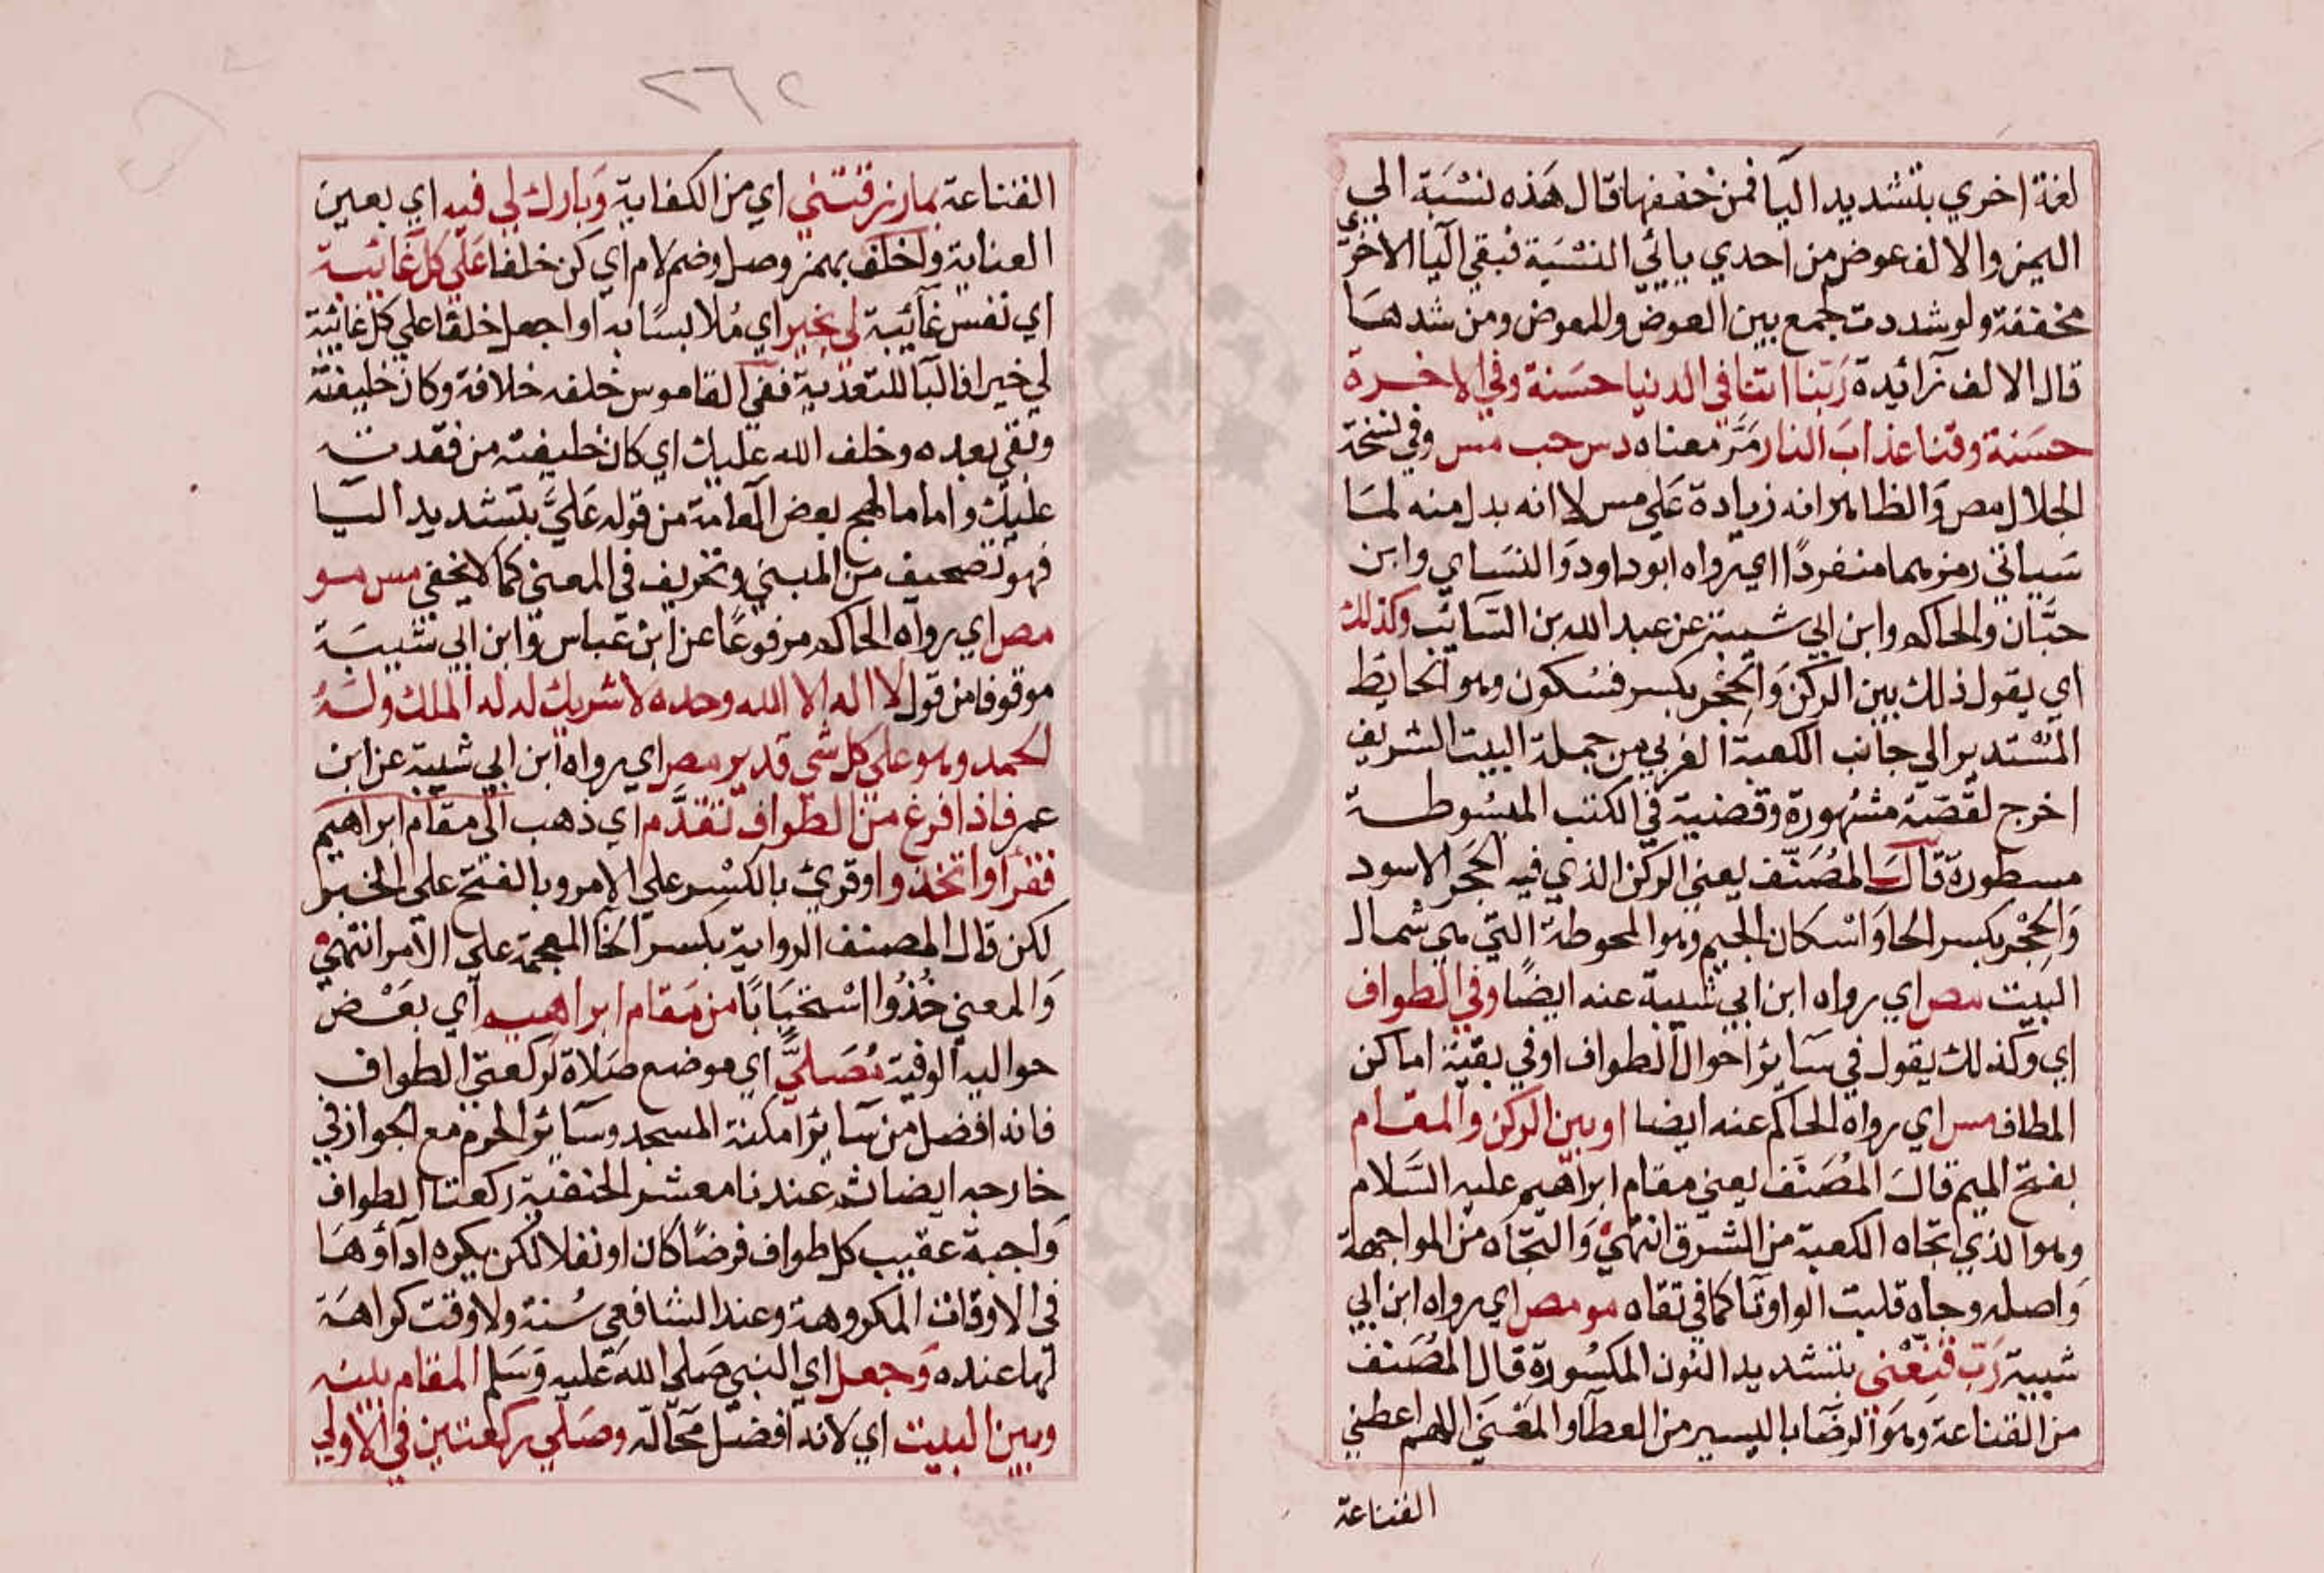 لغة اخري بتشديد اليا فمن خففها قال هذه نسبة الي
اليمن والالف عوض من احدي يائي النسبة فبقي اليا الاخري
مخففة ولو شددت لجمع بين العوض والمعوض ومن شددها
قال الالف زائدة ربنا اتنا في الدنيا حسنة وفي الاخرة
حسنة وقنا عذاب النار مَرَّ معناه دس حب مس وفي نسخة
الجلال مص والظاهر انه زيادة على مس لا انه بدل منه لما
سياتي رمزهما منفردًا اي رواه ابو داود والنساي وابن
حبان والحاكم وابن ابي شيبة عن عبد الله بن السائب وكذلك
اي يقول ذلك بين الركن والحِجْر بكسر فسكون وهو الحايط
المستدير الي جانب الكعبة الغربي من جملة البيت الشريف
اخرج لقصة مشهورة وقضية في الكتب المبسوطة
مسطورة قال المُصَنّف يعني الركن الذي فيه الحَجَر الاسود
وَالحِجْر بكسر الحا وَاسْكان الجيم وهو المحوطة التي هي شمال
البيت مص اي رواه ابن ابي شيبة عنه ايضًا وفي الطواف
اي وكذلك يقول في سائر احوال الطواف او في بقية اماكن
المطاف مس اي رواه الحاكم عنه ايضا او بين الركن والمقام
بفتح الميم قال المُصَنّف يعني مقام ابراهيم عليه السَّلام
وهو الذي تجاه الكعبة من الشرق انتهي وَالتجاه من المواجهة
وَاصله وجاه قلبت الواو تا كما في تقاه مو مص اي رواه ابن ابي
شيبة رَبّ قَنِّعْني بتشديد النون المكسُورة قال المُصَنف
من القناعة وهو الرضا باليسير من العطا والمَعْنَي اللهم اعطني
القناعة
٢٦٢
القناعة بما رزقتني اي من الكفاية وَبارك لي فيه اي بعين
العناية واخلف بهمز وصل وضم لام اي كن خلفا عَلَى كل غائبة
اي نفس غائبة لي بخير اي مُلابسًا به او اجعل خلفا علي كل غائبة
لي خيرا فالبا للتعدية ففي القاموس خلفه خلافة وكان خليفته
وبقي بعده وخلف الله عليك اي كان خليفة من فقدته
عليك واما ما لهج بعض العامة من قوله عَلَيَّ بتشديد اليا
فهو تصحيف من المبني وتحريف في المعني كما لا يخفي مس مو
مص اي رواه الحاكم مرفوعًا عن ابن عباس وابن ابي شيبَة
موقوفا من قول لا اله الا الله وحده لا شريك له له الملك وله
الحمد وهو علي كل شي قدير مص اي رواه ابن ابي شيبة عن ابن
عمر فاذا فرغ من الطواف تقدَّم اي ذهب الي مقام ابراهيم
فقرأ واتخذوا وقرئ بالكسْر علي الامر وبالفتح علي الخبر
لكن قال المصنف الرواية بكسر الخا المعجمة علي الامر انتهي
وَالمعني خُذُوا اسْتحْبَابًا من مَقام ابراهيم اي بعَض
حواليه الوفية مُصَلَّى اي موضع صَلاة لركعتي الطواف
فانه افضل من سائر امكنة المسجد وسائر الحرم مع الجواز في
خارجه ايضا ثم عندنا معشر الحنفية ركعتا الطواف
وَاجبة عقيب كل طواف فرضًا كان او نفلا لكن يكره اداؤهَا
في الاوقات المكروهة وعند الشافعي سُنة ولا وقت كراهَة
لها عنده وَجعل اي النبي صَلي الله عَليه وَسَلم المقام بينه
وبين البيت اي لانه افضل محاله وصَلي ركعتين في الاولي